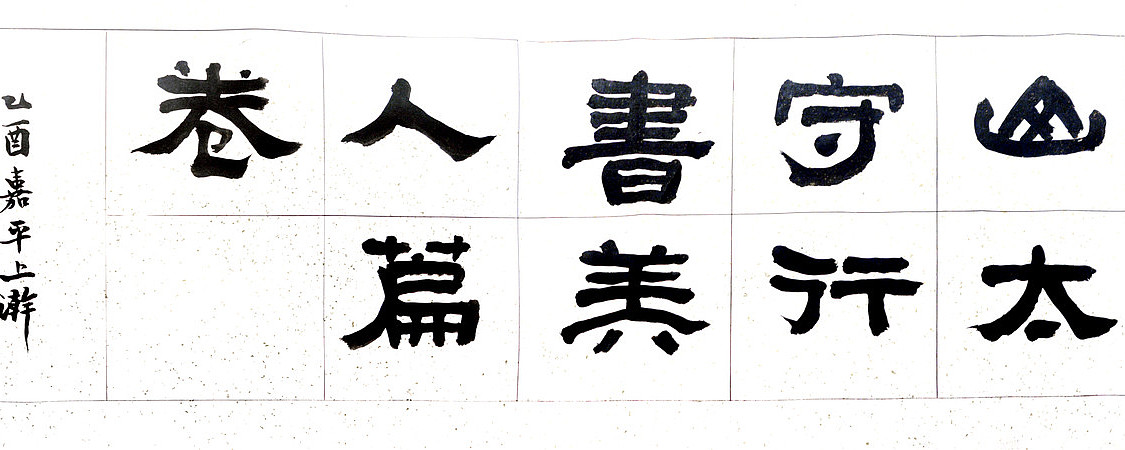 山太
守行
書美
人篇
卷
乙酉嘉平上澣